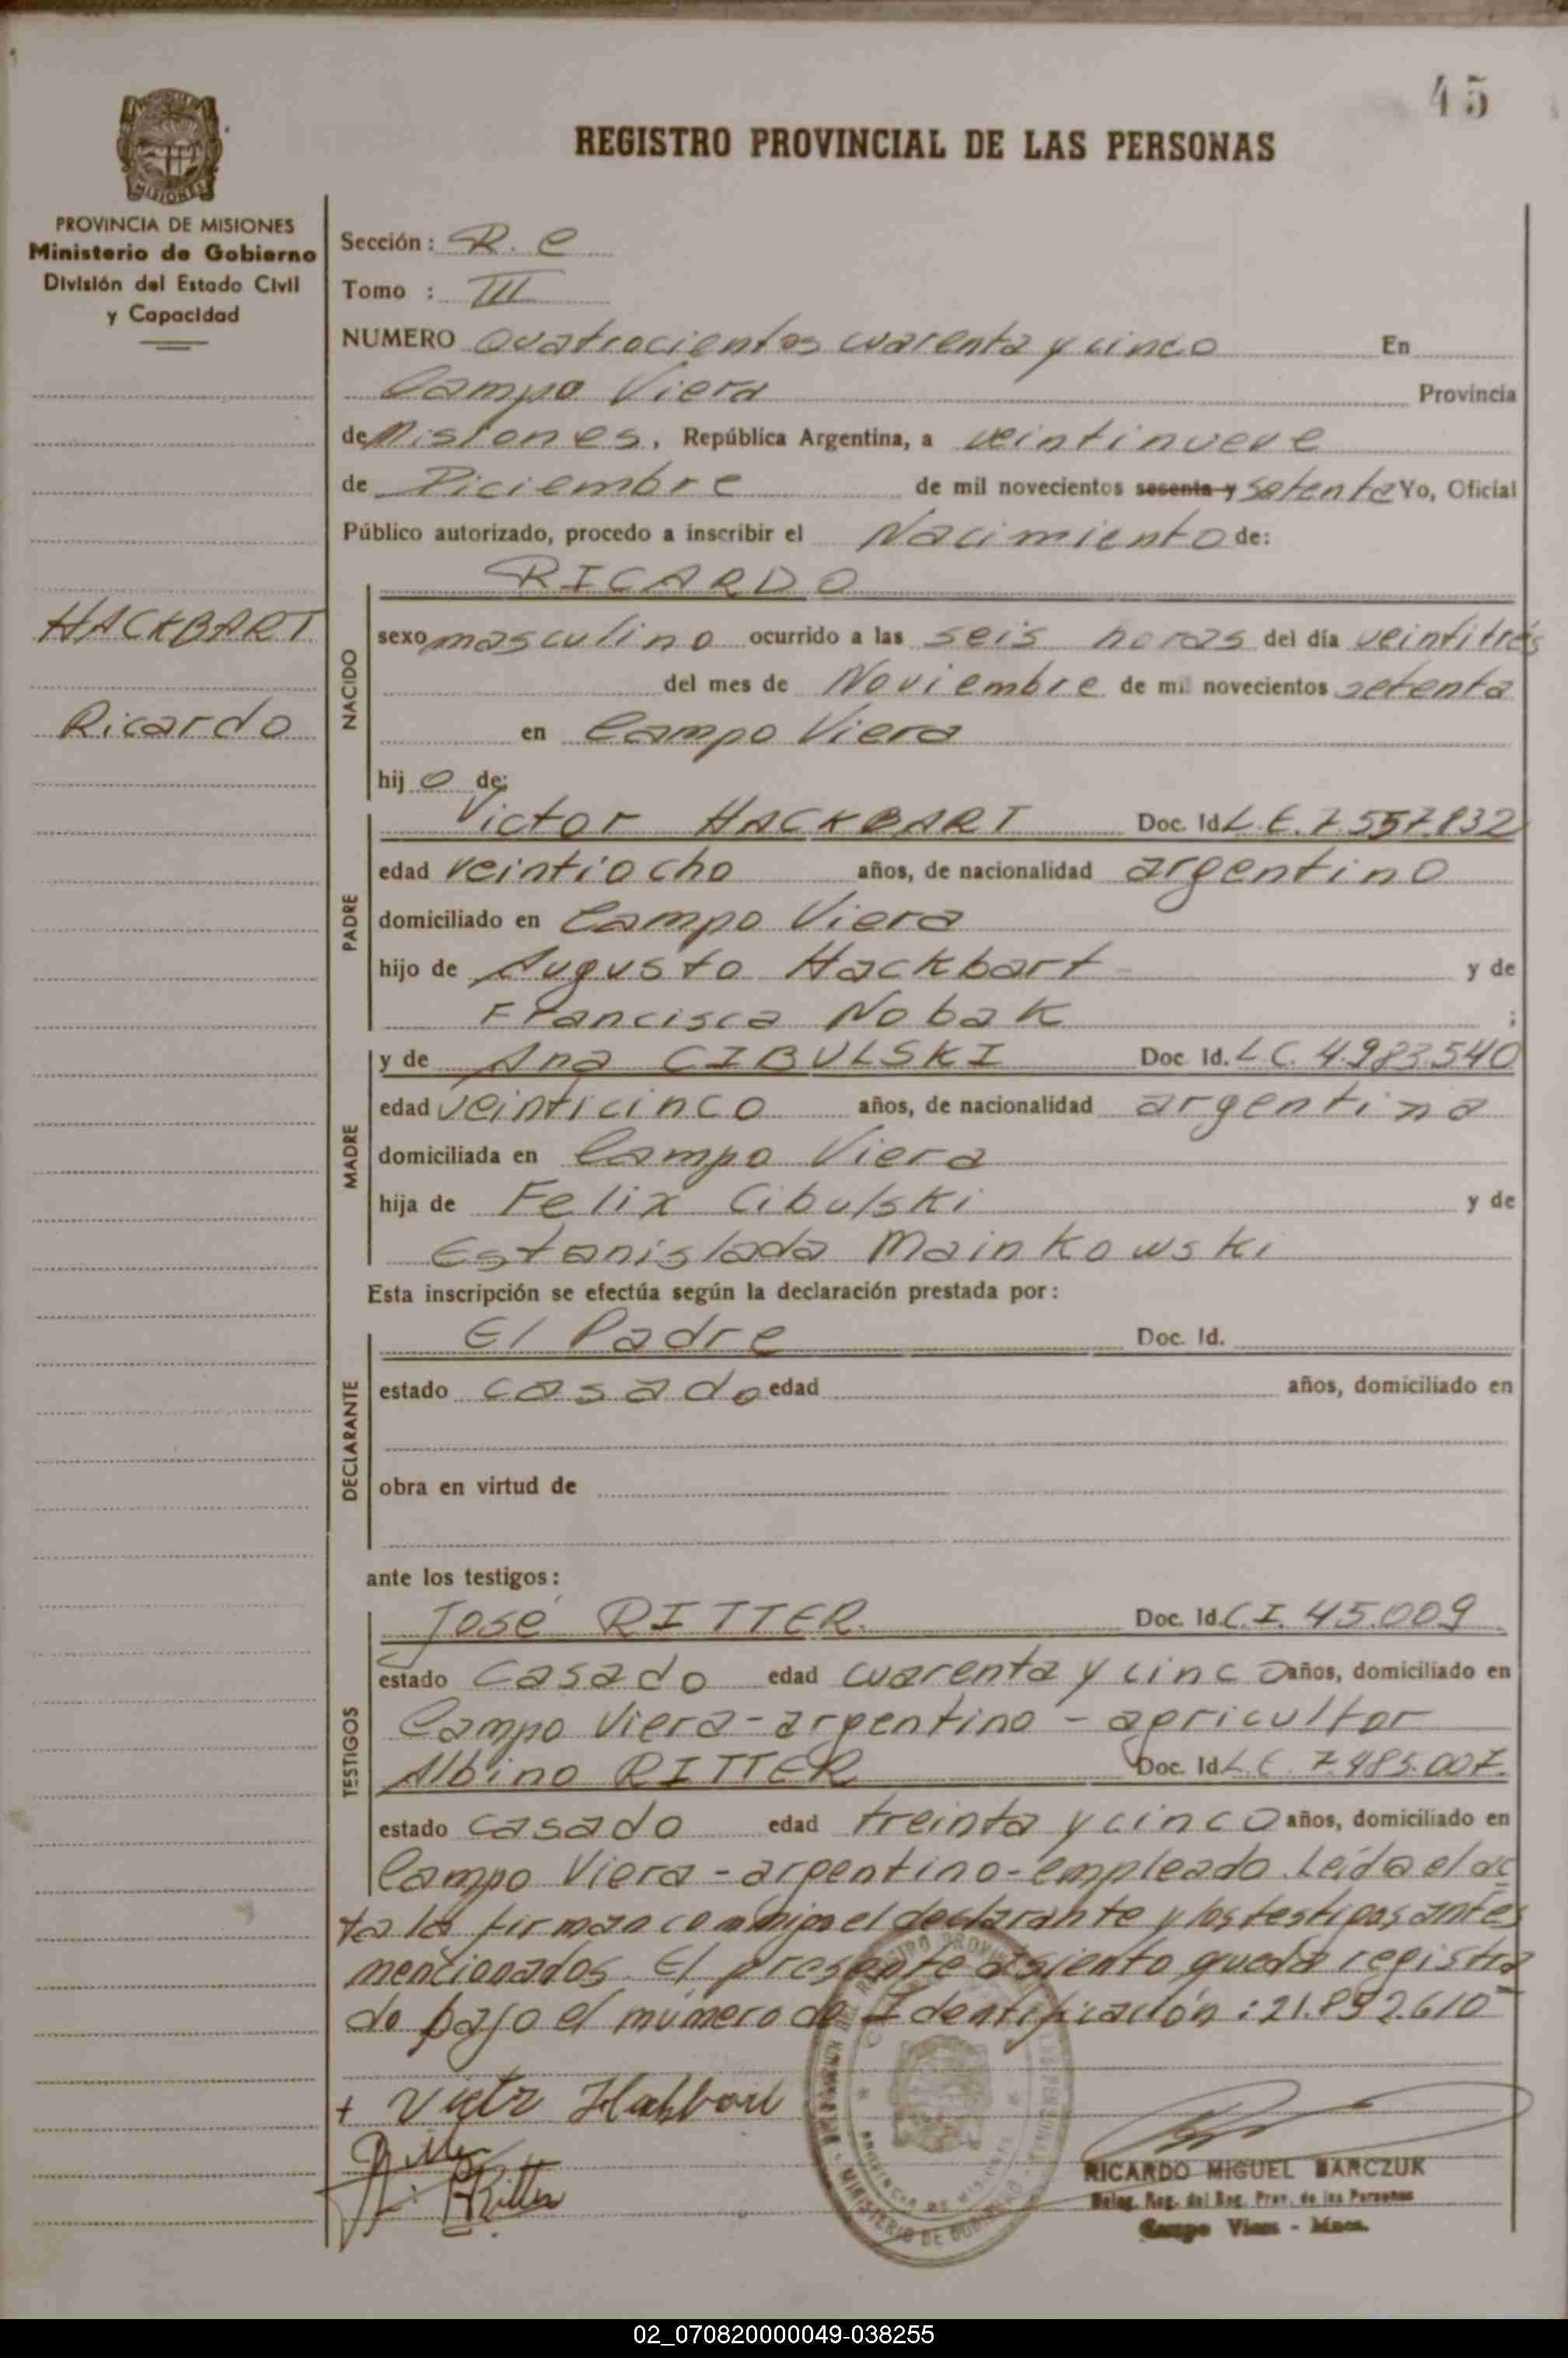 45
REGISTRO PROVINCIAL DE LAS PERSONAS
MISIONES
PROVINCIA DE MISIONES
Ministerio de Gobierno
División del Estado Civil
y Capacidad
HACKBART
Ricardo
Sección: R. C
Tomo : III
NUMERO Cuatrocientos cuarenta y cinco En
Campo Viera Provincia
de Misiones, República Argentina, a veintinueve
de Diciembre de mil novecientos sesenta y setenta Yo, Oficial
Público autorizado, procedo a inscribir el Nacimiento de:
RICARDO
NACIDO
sexo masculino ocurrido a las seis horas del día veintitrés
del mes de Noviembre de mil novecientos setenta
en Campo Viera
hij o de:
PADRE
Victor HACKBART Doc. Id. L.E. 7.557.832
edad veintiocho años, de nacionalidad argentino
domiciliado en Campo Viera
hijo de Augusto Hackbart y de
Francisca Nobak ;
MADRE
y de Ana CIBULSKI Doc Id. L C. 4.983.540
edad veinticinco años, de nacionalidad argentina
domiciliada en Campo Viera
hija de Felix Cibulski y de
Estanislada Mainkowski
Esta inscripción se efectúa según la declaración prestada por:
DECLARANTE
El Padre Doc. Id.
estado casado edad años, domiciliado en
obra en virtud de
ante los testigos:
TESTIGOS
José RITTER Doc. Id. C.I. 45.009
estado Casado edad cuarenta y cinco años, domiciliado en
Campo Viera - argentino - agricultor
Albino RITTER Doc. Id. L.E. 7.485.007
estado casado edad treinta y cinco años, domiciliado en
Campo Viera - argentino - empleado. Leída el ac
ta la firman conmigo el declarante y los testigos antes
mencionados. El presente asiento queda registra
do bajo el número de Identificación: 21.852.610
+ Victor Hackbart
Ritter
Ritter
MINISTERIO DE GOBIERNO
PROVINCIA DE MISIONES
RICARDO MIGUEL BARCZUK
Deleg. Reg. del Reg. Prov. de las Personas
Campo Viera - Mnes.
02_070820000049-038255